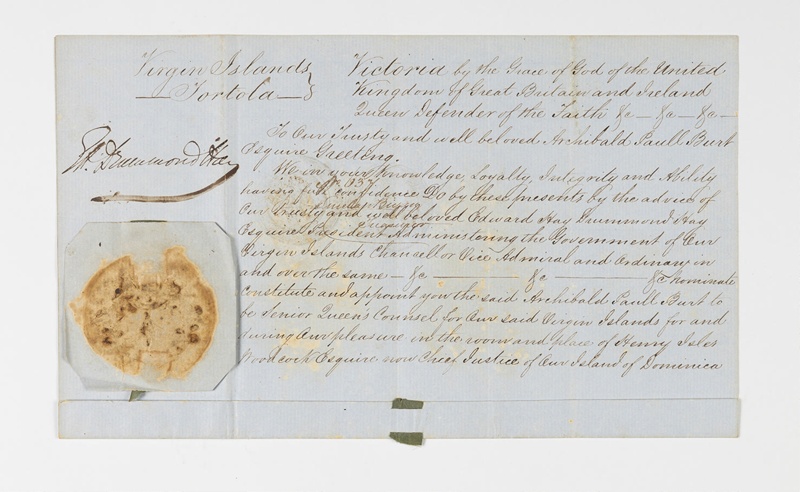 Virgin Islands
Tortola
Victoria by the Grace of God of the United
Kingdom of Great Britain and Ireland
Queen Defender of the Faith &c — &c — &c —
To Our Trusty and well beloved Archibald Paull Burt
Esquire Greeting.
Ed. Drummond Hay
We in your Knowledge, Loyalty, Integrity and Ability
having full confidence Do by these presents by the advice of
Our trusty and well beloved Edward Hay Drummond Hay
Esquire President Administering the Government of Our
Virgin Islands Chancellor Vice Admiral and Ordinary in
and over the same — &c — &c — &c Nominate
Constitute and appoint you the said Archibald Paull Burt to
be Senior Queen's Counsel for Our said Virgin Islands for and
during Our pleasure in the room and place of Henry Isles
Woodcock Esquire now Chief Justice of Our Island of Dominica